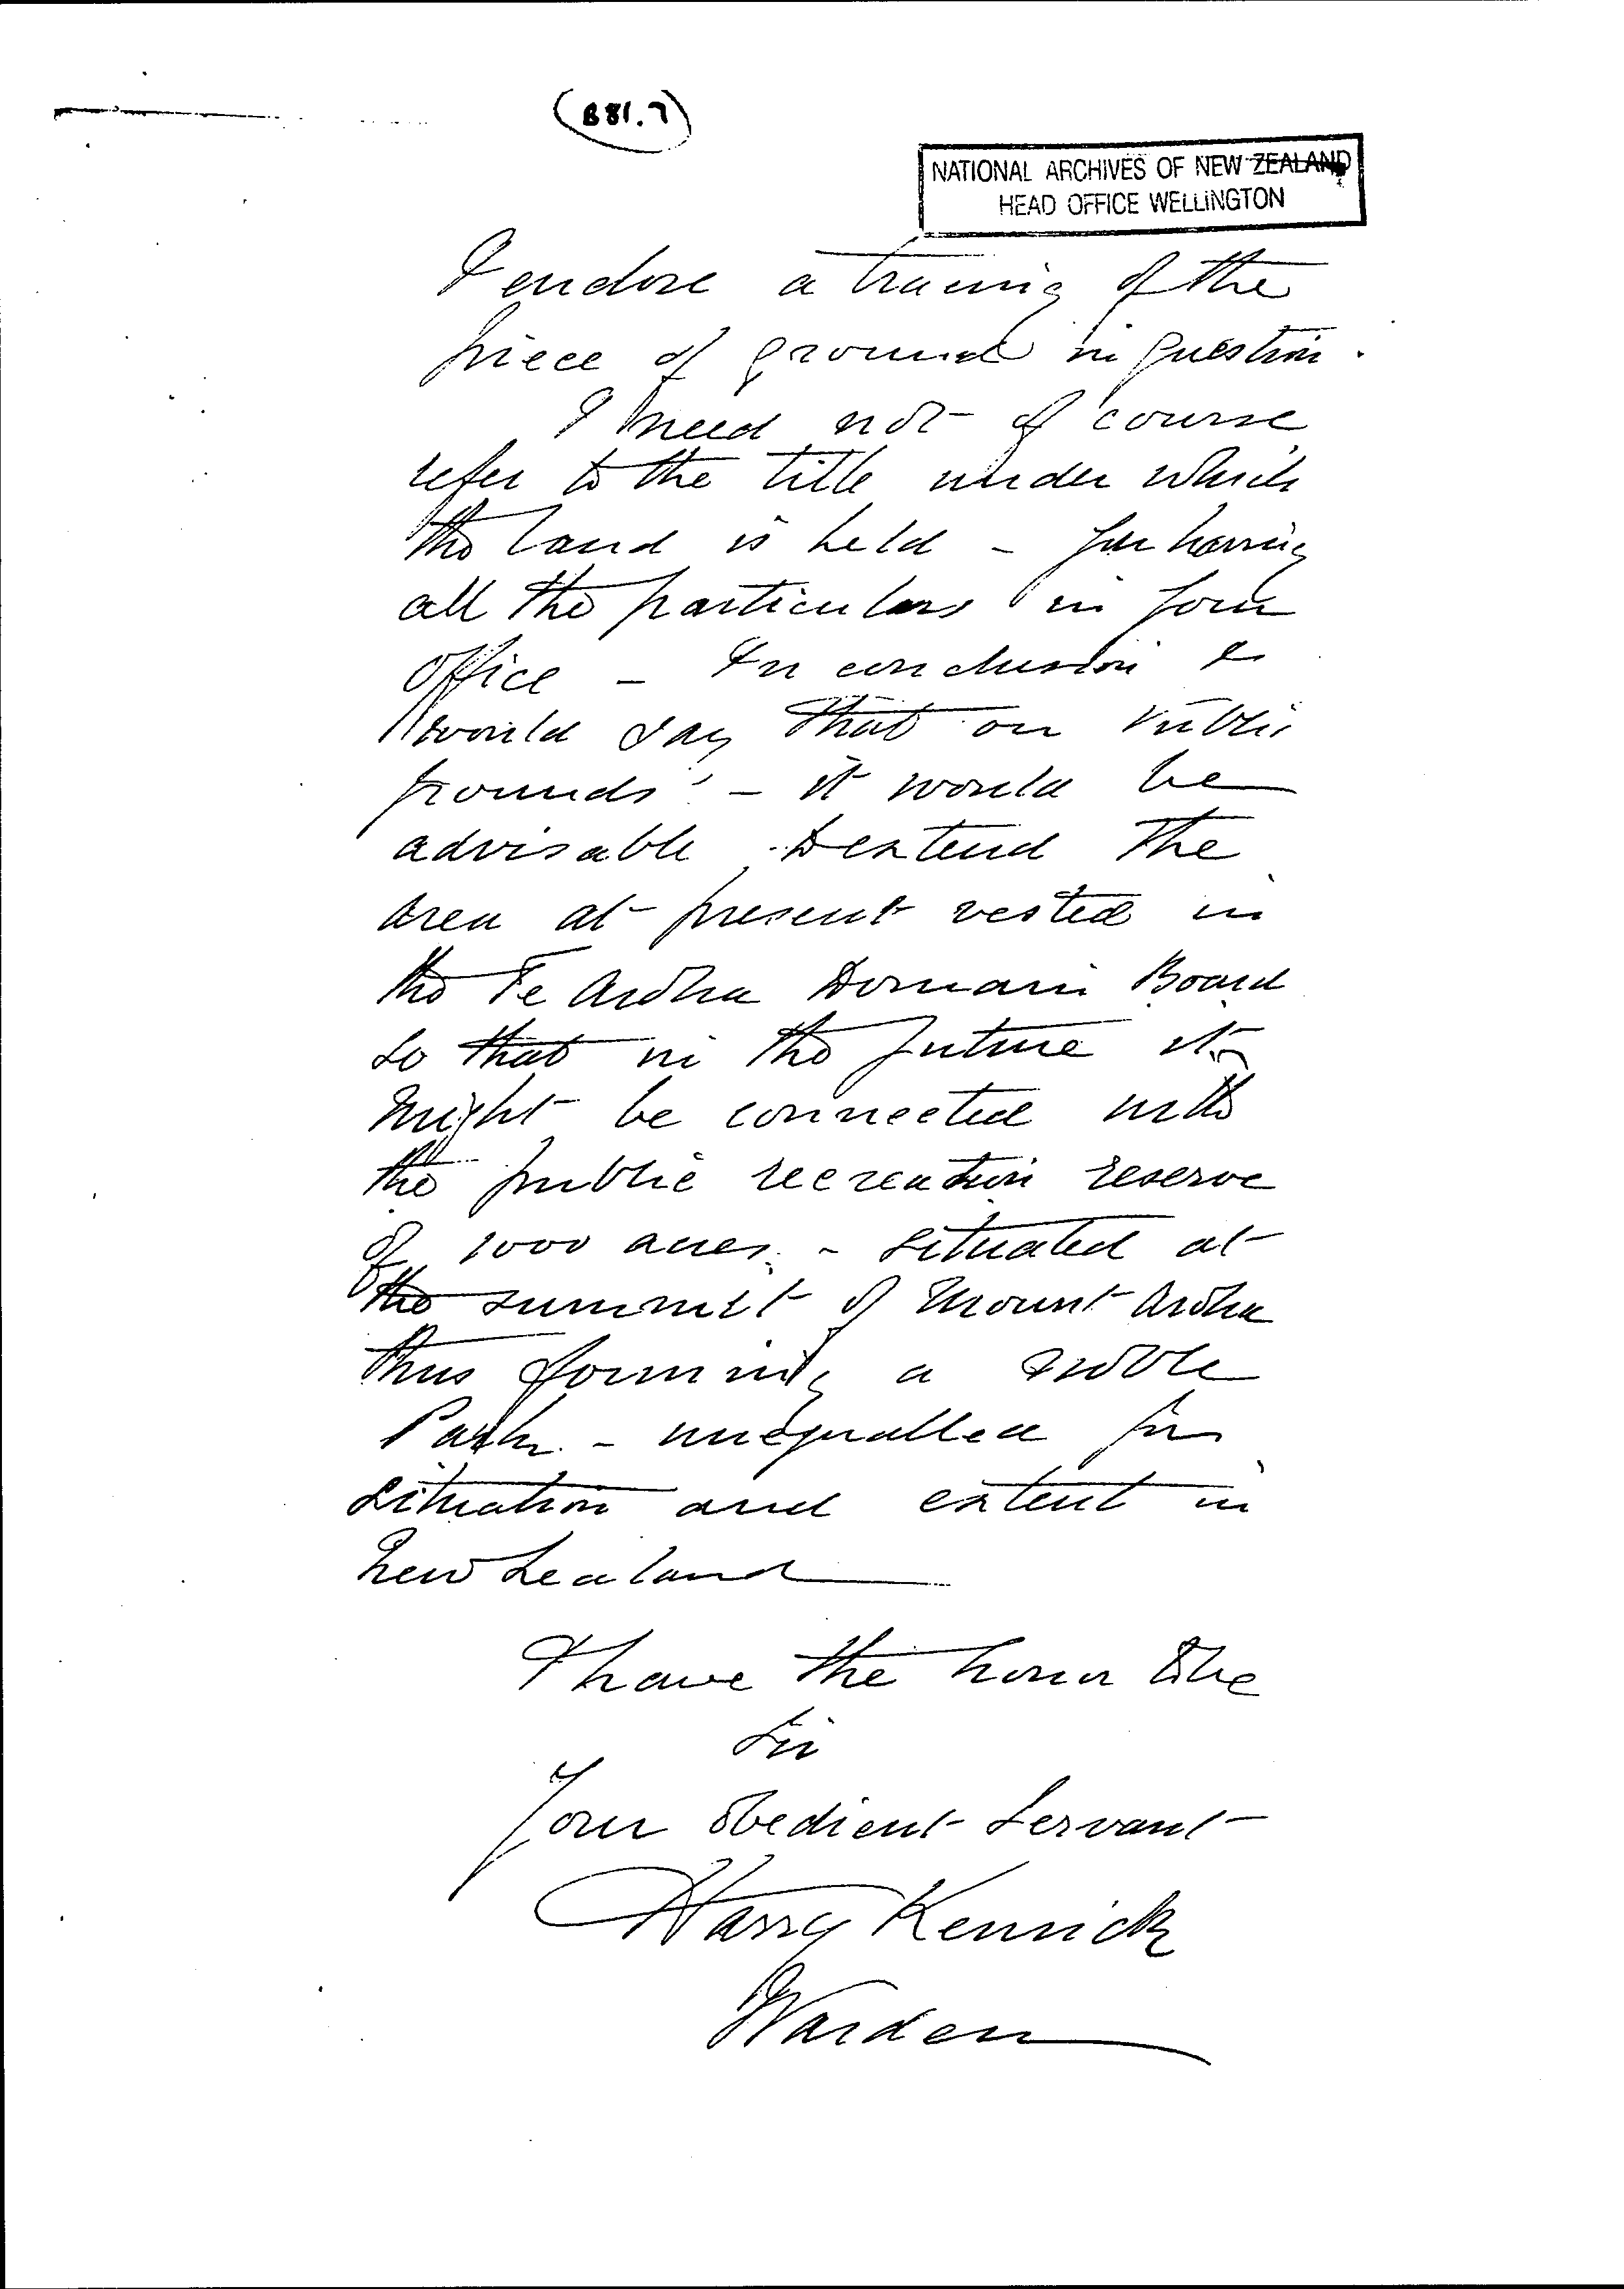 (B81.7)
NATIONAL ARCHIVES OF NEW ZEALAND
HEAD OFFICE WELLINGTON
I enclose a tracing of the
piece of ground in question.
I need not of course
refer to the title under which
the land is held - you having
all the particulars in your
office - In conclusion I
would say that on public
grounds - it would be
advisable to extend the
area at present vested in
the Te Aroha Domain Board
so that in the future it
might be connected with
the public recreation reserve
of 1000 acres. - situated at
the summit of Mount Aroha
thus forming a noble
Park. - unequalled for
situation and extent in
New Zealand
I have the honor to be
Sir
Your obedient Servant
Harry Kenrick
Warden